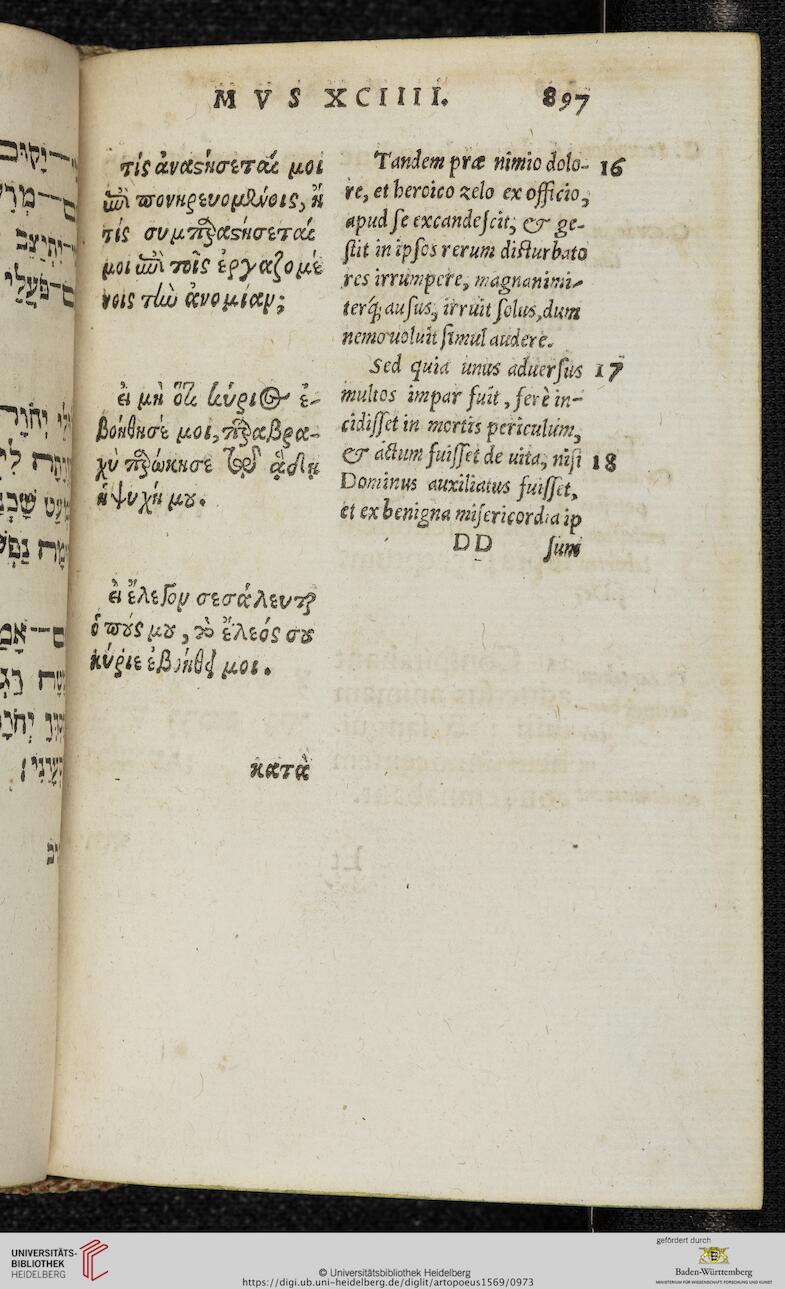 MVS XCIIII.
897
τίς ἀναστήσεταί μοι
ἐπὶ πονηρευομένοις, ἢ
τίς συμπαραστήσεταί
μοι ἐπὶ τοῖς ἐργαζομέ
νοις τὴν ἀνομίαν;
εἰ μὴ ὅτι κύριος ἐ-
βοήθησέ μοι, παραβρα-
χὺ παρῴκησε τῷ ᾅδῃ
ἡ ψυχή μου.
εἰ ἔλεγον σεσάλευται
ὁ πούς μου, τὸ ἔλεός σου
κύριε ἐβοήθει μοι.
κατὰ
Tandem præ nimio dolo- 16
re, et heroico zelo ex officio,
apud se excandescit, & ge-
stit in ipsos rerum disturbato
res irrumpere, magnanimi-
terq; ausus, irruit solus, dum
nemo uoluit simul audere.
Sed quia unus aduersus 17
multos impar fuit, ferè in-
cidisset in mortis periculum,
& actum fuisset de uita, nisi 18
Dominus auxiliatus fuisset,
et ex benigna misericordia ip
DD sum
UNIVERSITÄTS-
BIBLIOTHEK
HEIDELBERG
© Universitätsbibliothek Heidelberg
https://digi.ub.uni-heidelberg.de/diglit/artopoeus1569/0973
gefördert durch
Baden-Württemberg
MINISTERIUM FÜR WISSENSCHAFT, FORSCHUNG UND KUNST